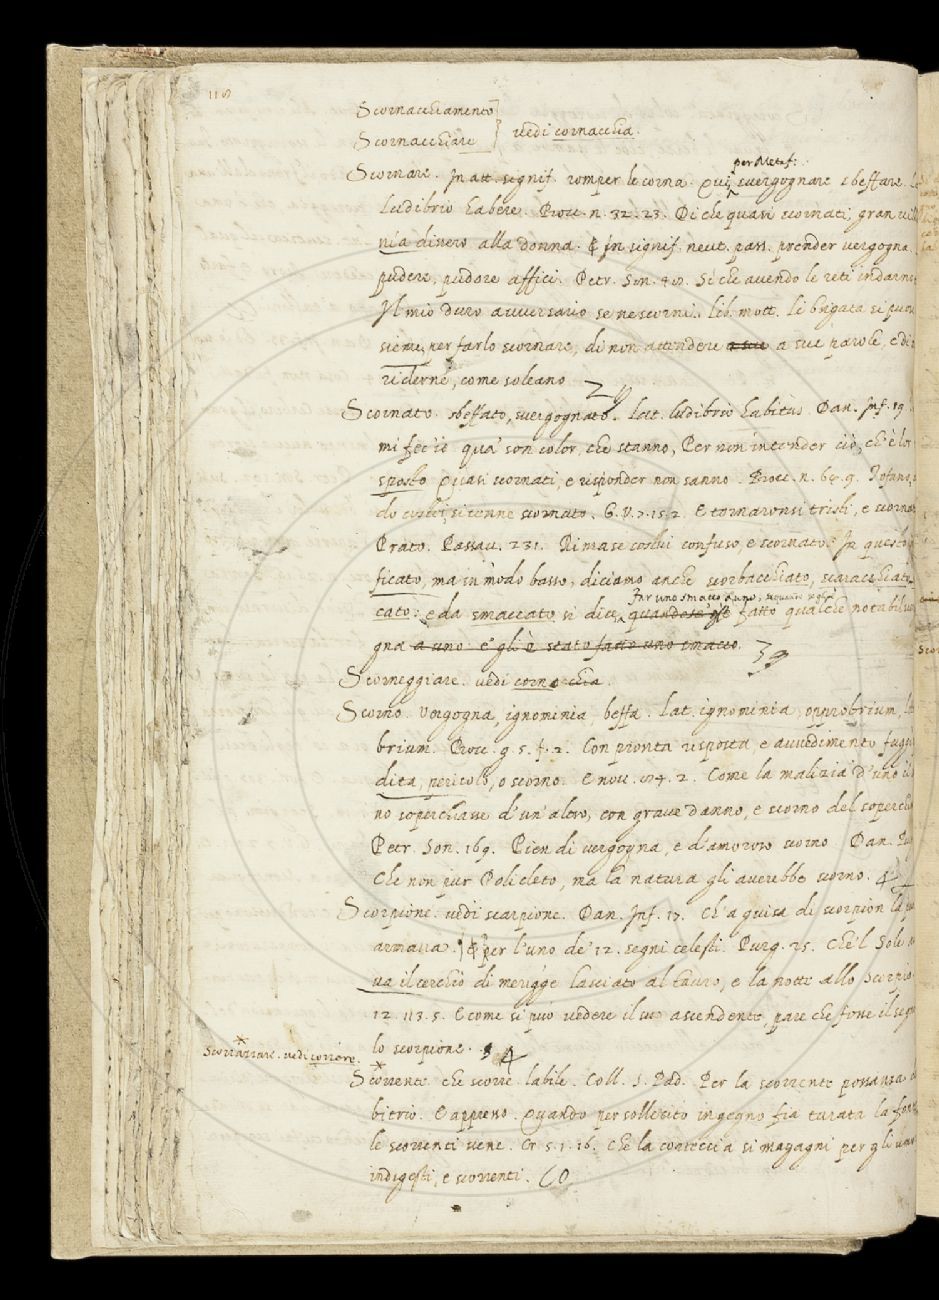 Scornacchiamento
Scornacchiare } vedi cornacchia.
per Metaf:
Scornare. In att. signif. romper le corna. Qui svergognare sbeffare.
ludibrio habere. Bocc. n. 32. 23. Di che quasi scornati, gran vill
nía dissero alla donna. & in signif. neut. pass. prender vergogna
pudere, pudore affici. Petr. Son. Si che avendo le reti indarno
Il mio duro avversario se ne scorni. lib. mott. li brigata si
sieme, per farlo scornare, di non attendere a sue a sue parole, e di
riderne, come soleano
Scornato. sbeffato, svergognato. Lat. ludibrio habitus. Dan. Inf. 19
mi fec' io qua' son color, che stanno, Per non intender ciò, ch'è lor
sposto Quasi scornati, e risponder non sanno. Bocc. n. 64. 9. Tofano,
do si tenne scornato. G. V. 7. 15. 2. E tornaronsi tristi, e scorna
Prato. Passav. 231. Rimase costui confuso, e scornato. In questo
ficato, ma in modo basso, diciamo anche scorbacchiato, scaracchiato
far uno smacco a uno,
cato: e da smaccato si dice, quando se gl'è fatto qualche notabil
gna a uno: e' gli è stato fatto uno smacco.
Scorneggiare. vedi cornacchia.
Scorno. Vergogna, ignominia, beffa. Lat. ignominia, opprobrium,
brium. Bocc. g. 5. f. 2. Con pronta risposta, e avvedimento fuggi
dita, pericolo, o scorno. E nov. 2. Come la malizia d'uno il
no soperchiasse d'un'altro, con grave danno, e scorno del soperchi
Petr. Son. 169. Pien di vergogna, e d'amoroso scorno. Dan.
Che non pur Policleto, ma la natura gli averebbe scorno. 4
Scorpione. vedi scarpione. Dan. Inf. 17. Ch'a guisa di scorpion la
armava. & per l'uno de' 12. segni celesti. Purg. 25. Che'l Sole
va il cerchio di merigge lasciato al Tauro, e la notte allo Scorpio
12. 113. 5. E come si può vedere il suo ascendente, pare che fosse il seg
lo scorpione. 4
Scorrazzare. vedi correre.
Scorrente che scorre. labile. Coll. S. Pad. Per la scorrente possanza
bitrio. E appresso. Quando per sollecito ingegno fia turata la
le scorrenti vene. Cr. 5. 1. 16. Che la corteccia si magagni per gli
indigesti, e scorrenti.